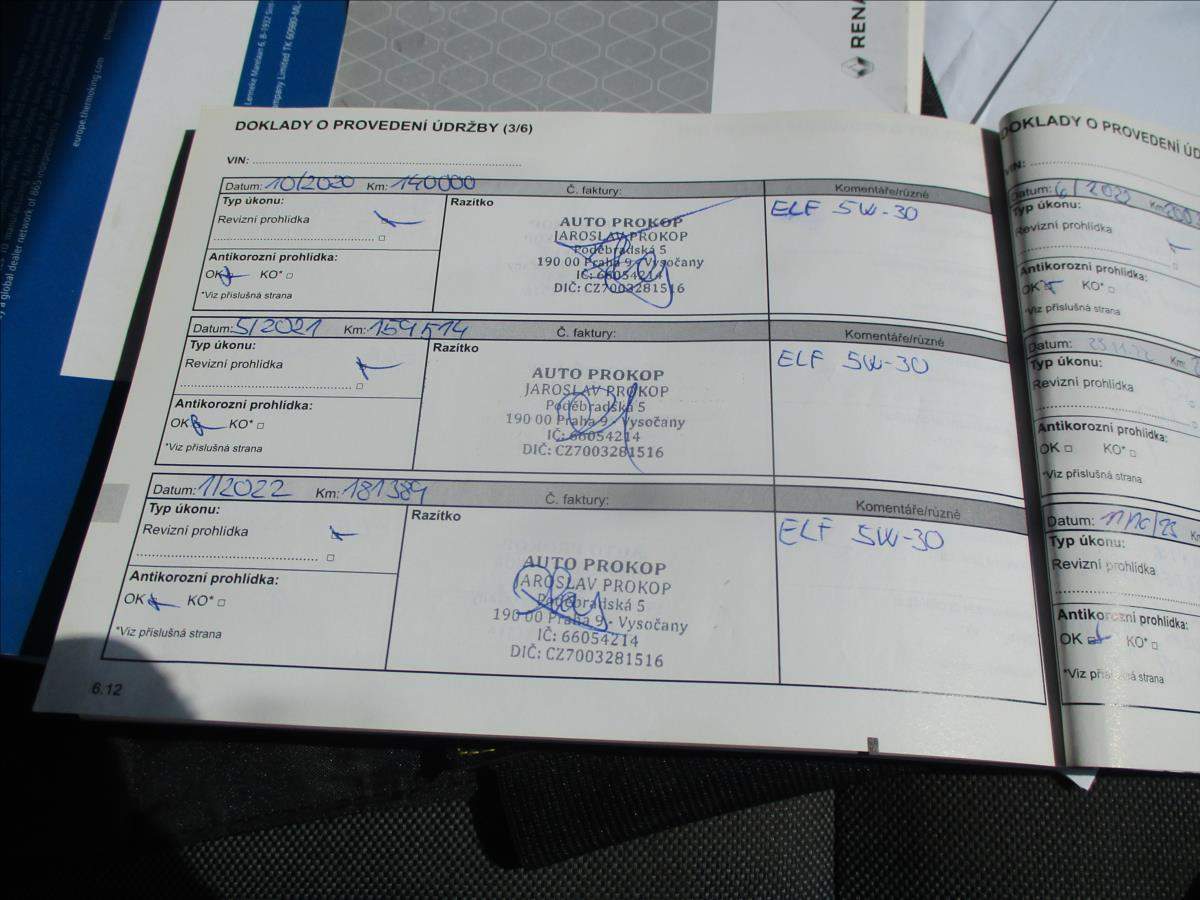 Lemeke Marelaan 6, B-1932 Sint
ompany Limited TK 60980-ML-
europe.thermoking.com
y a global dealer network of
RENA
DOKLADY O PROVEDENÍ ÚDRŽBY (3/6)
VIN:
Datum: 10/2020 Km: 140000 Č. faktury: Komentáře/různé
Typ úkonu: Razítko ELF 5W-30
Revizní prohlídka
AUTO PROKOP
JAROSLAV PROKOP
Poděbradská 5
190 00 Praha 9 - Vysočany
IČ: 66054214
DIČ: CZ7003281516
Antikorozní prohlídka:
OK KO*
*Viz příslušná strana
Datum: 5/2021 Km: 159514 Č. faktury: Komentáře/různé
Typ úkonu: Razítko ELF 5W-30
Revizní prohlídka
AUTO PROKOP
JAROSLAV PROKOP
Poděbradská 5
190 00 Praha 9 - Vysočany
IČ: 66054214
DIČ: CZ7003281516
Antikorozní prohlídka:
OK KO*
*Viz příslušná strana
Datum: 1/2022 Km: 181389 Č. faktury: Komentáře/různé
Typ úkonu: Razítko ELF 5W-30
Revizní prohlídka
AUTO PROKOP
JAROSLAV PROKOP
Poděbradská 5
190 00 Praha 9 - Vysočany
IČ: 66054214
DIČ: CZ7003281516
Antikorozní prohlídka:
OK KO*
*Viz příslušná strana
6.12
DOKLADY O PROVEDENÍ ÚD
VIN:
Datum: 6/2022 Km:
Typ úkonu:
Revizní prohlídka
Antikorozní prohlídka:
OK KO*
*Viz příslušná strana
Datum: Km:
Typ úkonu:
Revizní prohlídka
Antikorozní prohlídka:
OK KO*
*Viz příslušná strana
Datum:
Typ úkonu:
Revizní prohlídka
Antikorozní prohlídka:
OK KO*
*Viz příslušná strana